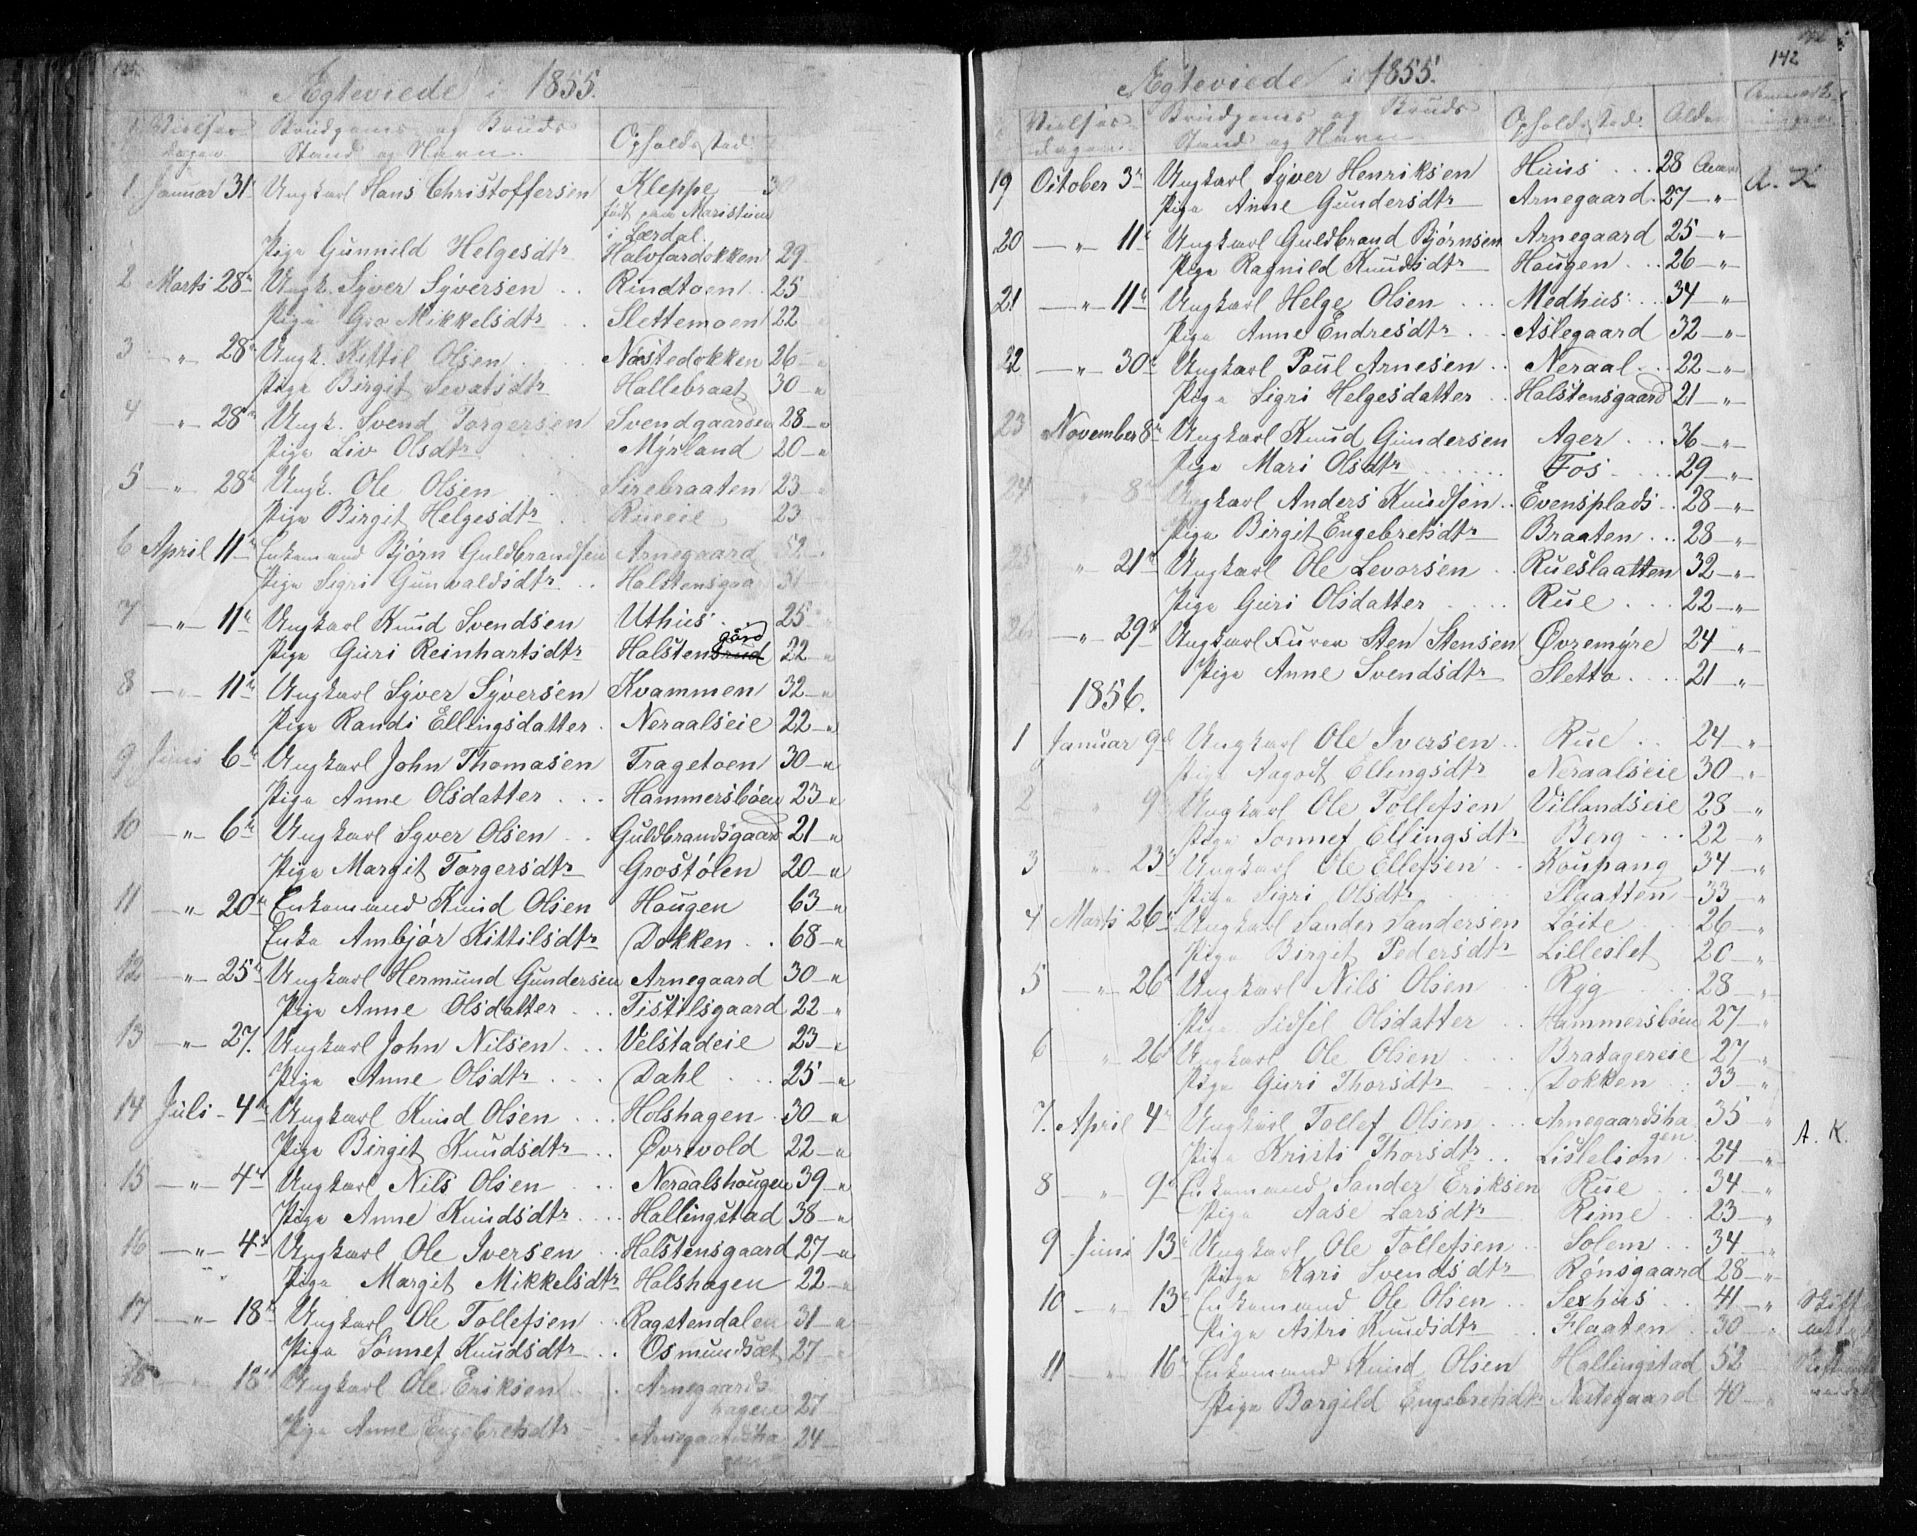 Ægteviede i 1855.
Vielses dagen. Brudgoms og Bruds Stand og Navn. Opholdssted
1 Januar 31 Ungkarl Hans Christoffersen Kleppe 30
født paa Maristuen
i Lærdal.
Pige Gunnild Helgesdtr Halvfardokken 29
2 Marts 28 Ungk. Syver Syversen Rindtoen 25
Pige Gro Mikkelsdtr Slettemoen 22 "
3 " 28 Ungk. Kittil Olsen Nøstedokken 26 "
Pige Birgit Sevatsdtr Hallebraat 30 "
4 " 28 Ungk. Svend Torgersen Svendgaarden 28 "
Pige Liv Olsdtr Myrland 20 "
5 " 28 Ungk. Ole Olsen Sirebraaten 23
Pige Birgit Helgesdtr Rueeie 23
6 April 11 Enkemand Bjørn Guldbrandsen Arnegaard 52
Pige Sigri Gunvaldsdtr Halstensgaa
7 " 11 Ungkarl Knud Svendsen Uthus 25
Pige Guri Reinhartsdtr Halstensrud gård 22 "
8 " 11 Ungkarl Syver Syversen Kvammen 32 "
Pige Randi Ellingsdatter Neraalseie 22 "
9 Juni 6 Ungkarl John Thomasen Tragetoen 30 "
Pige Anne Olsdatter Hammersbøen 23 "
10 " 6 Ungkarl Syver Olsen Guldbrandsgaard 21 "
Pige Margit Torgersdtr Grostølen 20 "
11 " 20 Enkemand Knud Olsen Hougen 63 "
Enke Ambjør Kittilsdtr Dokken 68 "
12 " 25 Ungkarl Hermund Gundersen Arnegaard 30 "
Pige Anne Olsdatter Tistilsgaard 22 "
13 " 27. Ungkarl John Nilsen Velstadeie 23 "
Pige Anne Olsdtr Dahl 25 "
14 Juli 4 Ungkarl Knud Olsen Holshagen 30 "
Pige Birgit Knudsdtr Øvrevold 22 "
15 " 4 Ungkarl Nils Olsen Neraalshougen 39 "
Pige Anne Knudsdtr Hallingstad 38 "
16 " 4 Ungkarl Ole Iversen Halstensgaard 27 "
Pige Margit Mikkelsdtr Holshagen 22 "
17 " 18 Ungkarl Ole Tollefsen Ragstendalen 31 "
Pige Sønnef Knudsdtr Osmundsæt 27 "
18 18 Ungkarl Ole Eriksen Arnegaards
hagen 27
Pige Anne Engebretsdtr Arnegaardsha 24
gen
142
Ægteviede i 1855.
Vielses dagen. Brudgoms og Bruds Stand og Navn Opholdssted. Alder
19 October 3 Ungkarl Syver Henriksen Huus 28 Aar
Pige Anne Gundersdtr Arnegaard 27 "
20 " 11 Ungkarl Guldbrand Bjørnsen Arnegaard 25 "
Pige Ragnild Knudsdtr Hougen 26 "
21 " 11 Ungkarl Helge Olsen Medhus 34 "
Pige Anne Endresdtr Aslegaard 32 "
22 " 30 Ungkarl Poul Arnesen Neraal 22 "
Pige Sigri Helgesdatter Halstensgaard 21 "
23 November 8 Ungkarl Knud Gundersen Ager 36 "
Pige Mari Olsdtr Fos 29 "
24 " 8 Ungkarl Anders Knudsen Evensplads 28 "
Pige Birgit Engebretsdtr Braaten 28 "
25 " 21 Ungkarl Ole Levorsen Rueslaatten 32 "
Pige Guri Olsdatter Rue 22 "
26 " 29 Ungkarl Furer Sten Stensen Øvremyre 24 "
Pige Anne Svendsdtr Sletto 21 "
1856.
1 Januar 9 Ungkarl Ole Iversen Rue 24 "
Pige Aagodt Ellingsdtr Neraalseie 30 "
2 " 9 Ungkarl Ole Tollefsen Villandseie 28 "
Pige Sonnef Ellingsdtr Berg 22 "
3 " 23 Ungkarl Ole Ellefsen Koupang 34 "
Pige Sigri Olsdtr Slaatten 33 "
4 Marts 26 Ungkarl Sander Sandersen Løite 26 "
Pige Birget Pedersdtr Lilleslet 20 "
5 " 26 Ungkarl Nils Olsen Ryg 28 "
Pige Sidsel Olsdatter Hammersbøen 27 "
6 " 26 Ungkarl Ole Olsen Bratagereie 27 "
Pige Guri Thorsdtr Dokken 33 "
7. April 4 Ungkarl Tollef Olsen Arnegaardsha 35 "
gen A. K.
Pige Kristi Thorsdtr Listelien 24 "
8 " 9 Enkemand Sander Eriksen Rue 34 "
Pige Aase Larsdtr Rime 23 "
9 Juni 13 Ungkarl Ole Tollefsen Solem 34 "
Pige Kari Svendsdtr Rønsgaard 28 "
10 " 13 Enkemand Ole Olsen Sexhus 41 "
Pige Astri Knudsdtr Flaaten 30 "
11 " 16 Enkemand Knud Olsen Hallingstad 52
Pige Bargild Engebretsdtr Nestegaard 40 "